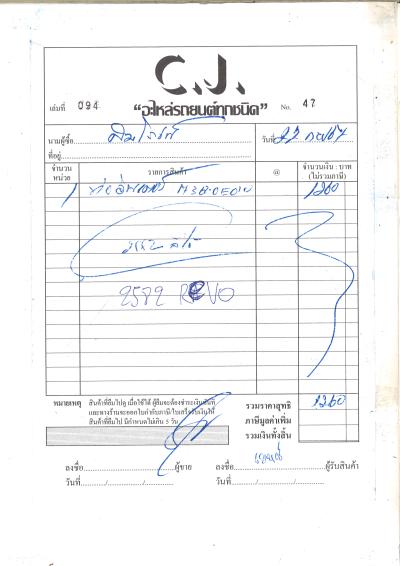 C.J.
เล่มที่ 094 "อะไหล่รถยนต์ทุกชนิด" No. 47
นามผู้ซื้อ วันที่ 27
ที่อยู่
จำนวน หน่วย รายการสินค้า @ จำนวนเงิน : บาท (ไม่รวมภาษี)
1 1260
2582 REVO
หมายเหตุ สินค้าที่ยืมไปดู เมื่อใช้ได้ ผู้ยืมจะต้องชำระเงินทันที
และทางร้านจะออกใบกำกับภาษี/ใบเสร็จรับเงินให้
สินค้าที่ยืมไป มีกำหนดไม่เกิน 5 วัน
รวมราคาสุทธิ 1260
ภาษีมูลค่าเพิ่ม
รวมเงินทั้งสิ้น
ลงชื่อ ผู้ขาย ลงชื่อ ผู้รับสินค้า
วันที่ / / วันที่ / /